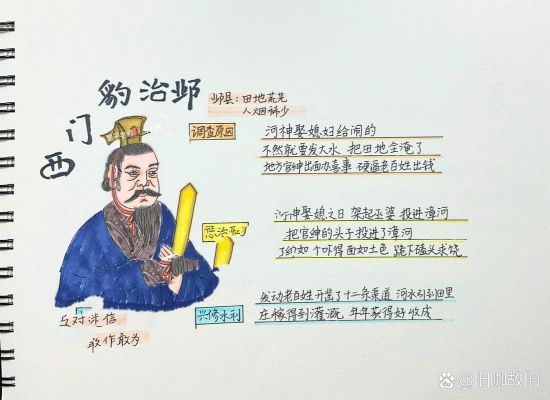 西门豹治邺
邺县：田地荒芜
人烟稀少
调查原因
河神娶媳妇给闹的
不然就要发大水 把田地全淹了
地方官绅出面办喜事 硬逼老百姓出钱
惩治
河神娶媳之日 架起巫婆 投进漳河
把官绅的头子投进了漳河
个吓得面如土色 跪下磕头求饶
兴修水利
发动老百姓 开凿了十二条渠道 河水引到田里
庄稼得到灌溉 年年获得好收成
反对迷信
敢作敢为
旧咖敌旧